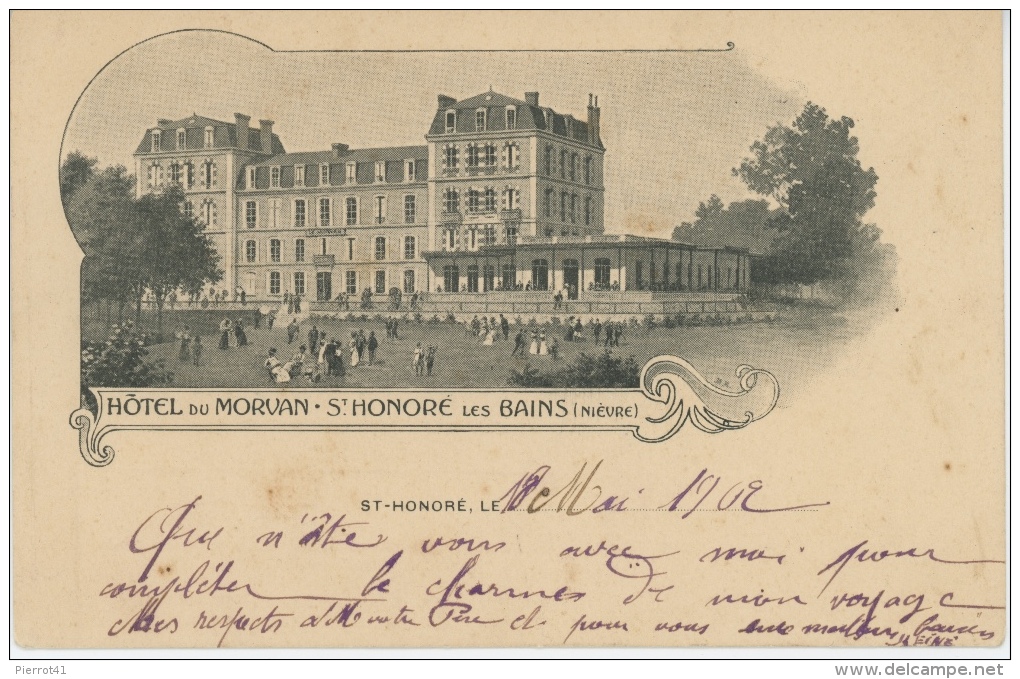 HÔTEL DU MORVAN · ST HONORÉ LES BAINS (NIÈVRE)
ST-HONORÉ, LE 18 Mai 1902
Que n'ête vous avec moi pour
compléter le charmes de mon voyage
Mes respects a M votre Père et pour vous mes meilleurs baisers
Pierrot41
delcampe.net